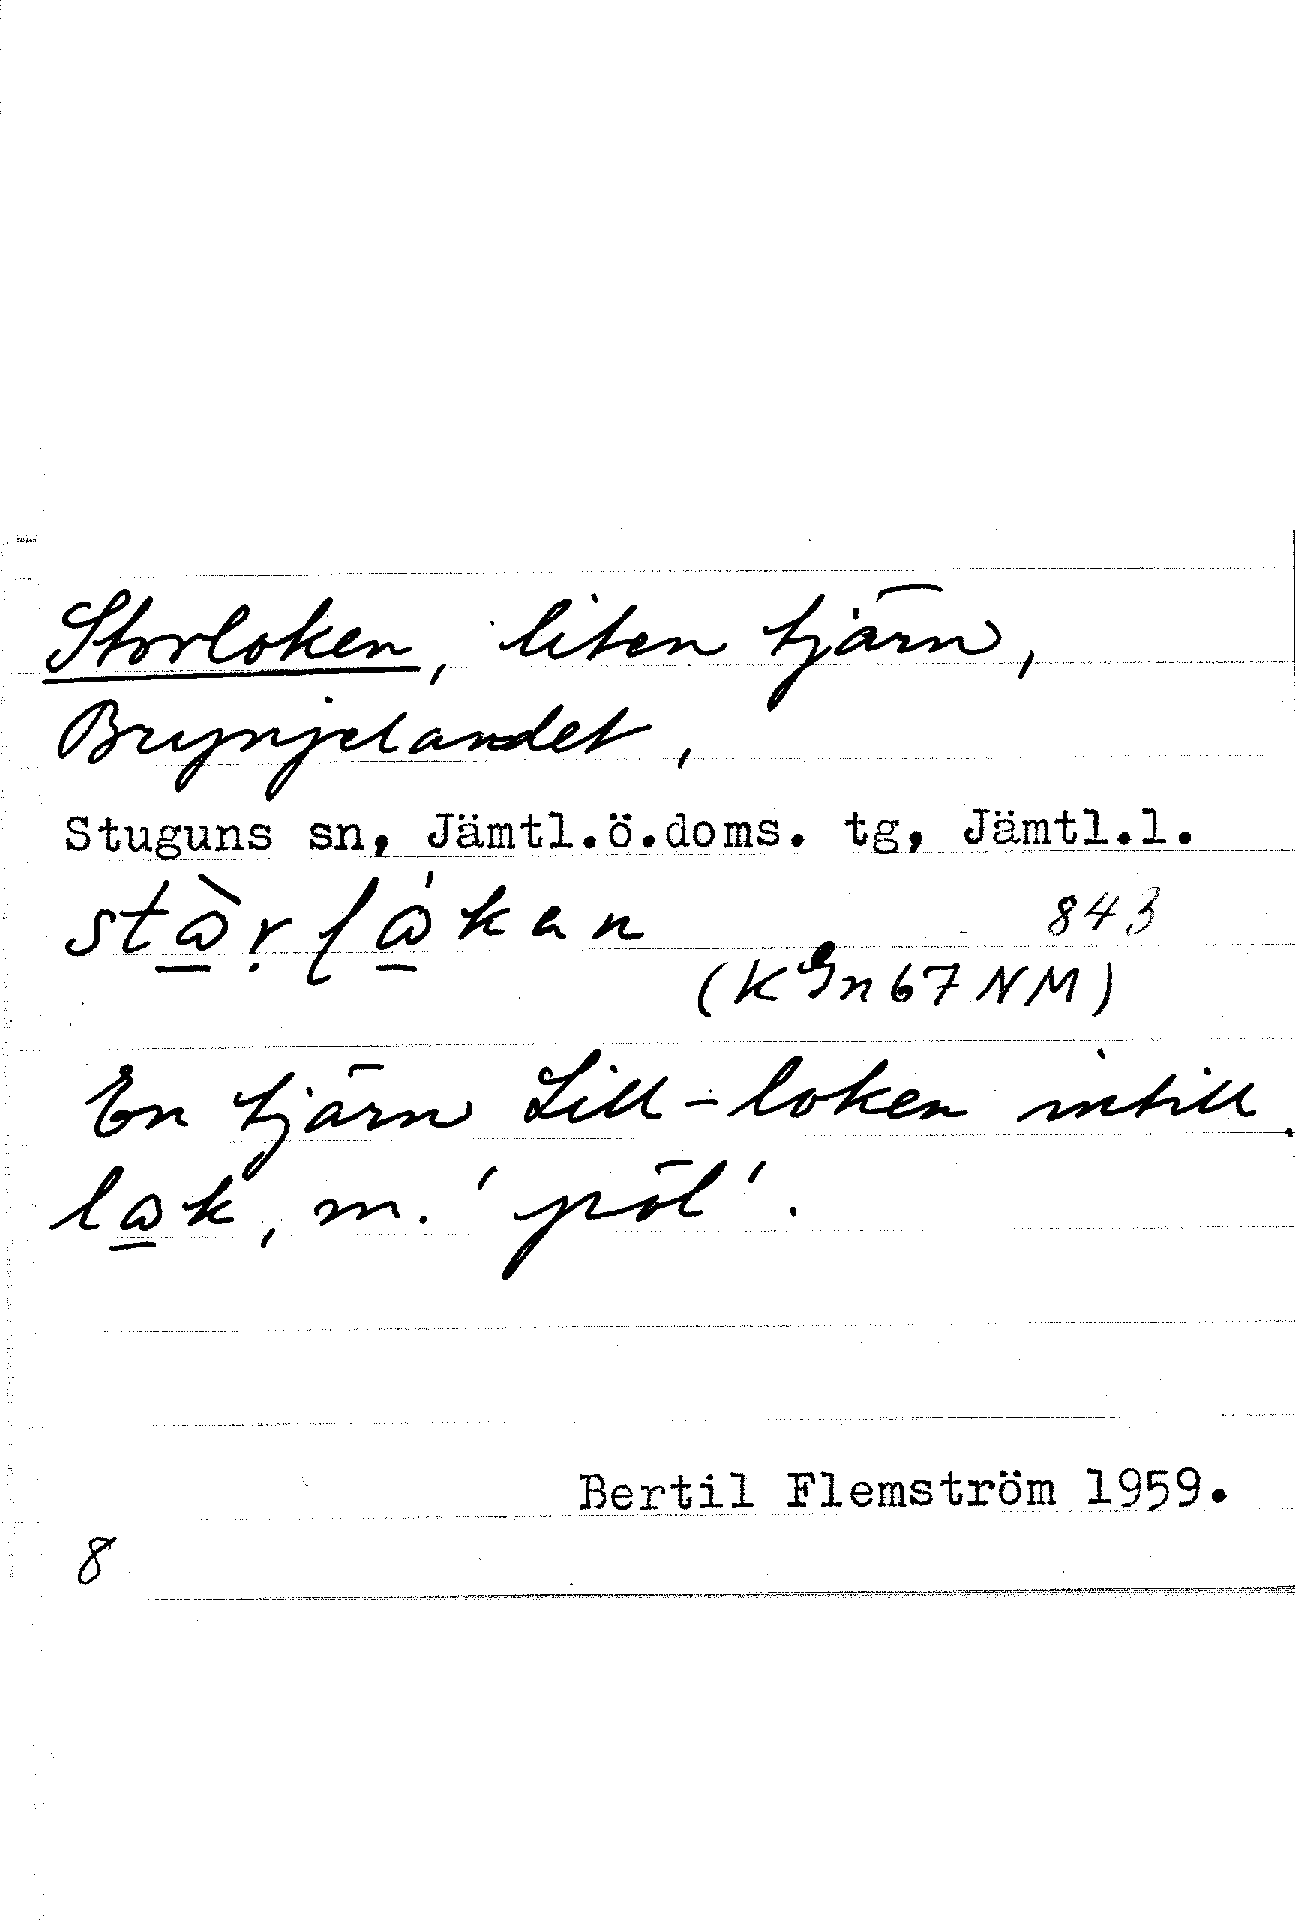 Storloken, liten tjärn,
Brynjelandet,
Stuguns sn, Jämtl.ö.doms. tg, Jämtl.l.
843
(K Gn 67 NM)
En tjärn Lill-loken intill.
lak, m. 'pöl'.
Bertil Flemström 1959.
8